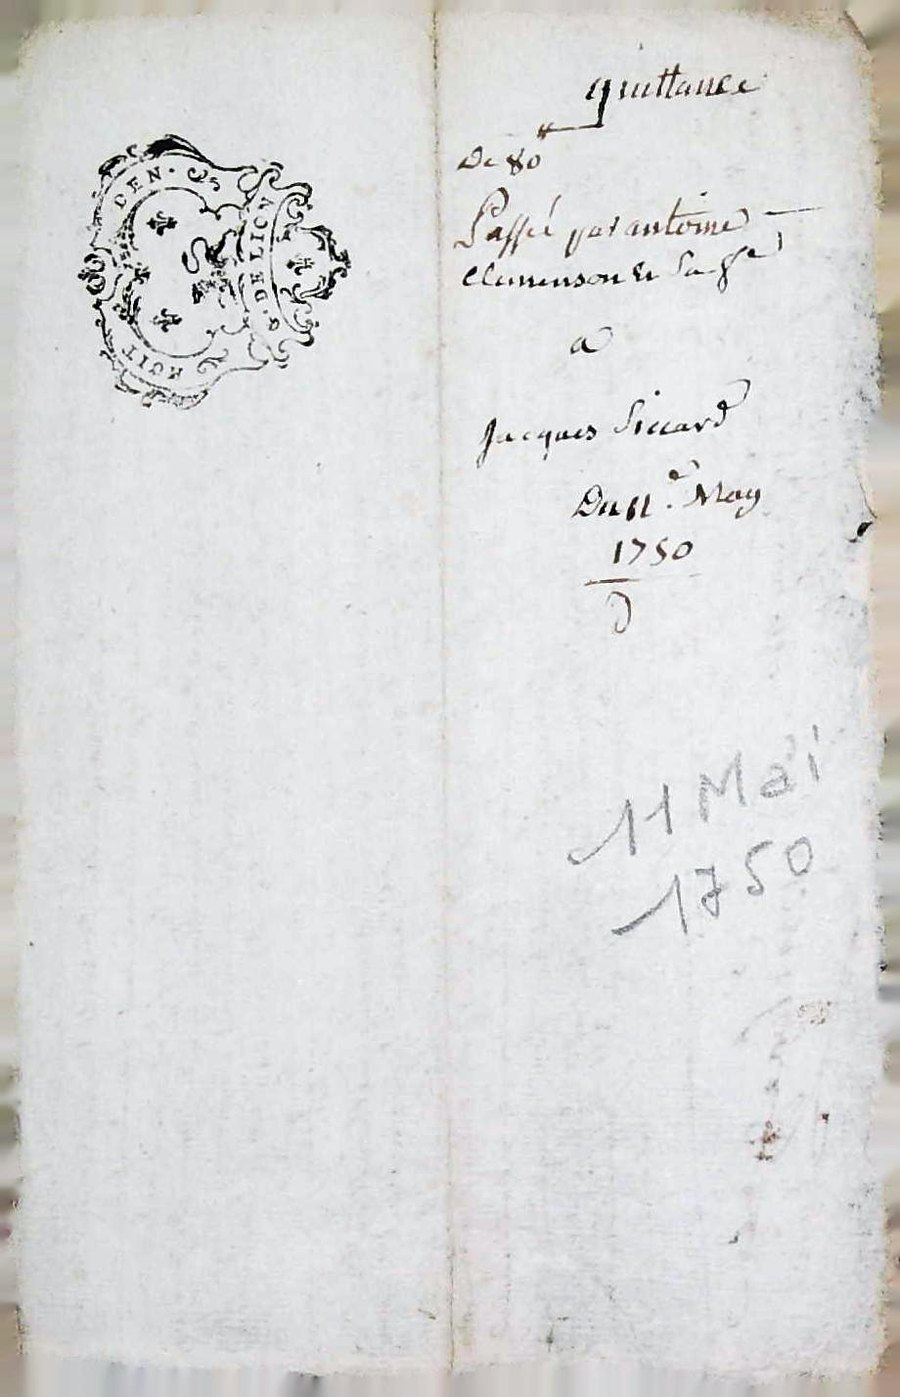 HUIT DEN.
G. DE LIOV
quittance
De 80 ₶
Passée par antoine
Clemenson & Sa fe
a
Jacques Siccard
Du 11e. May
1750
11 Mai
1750